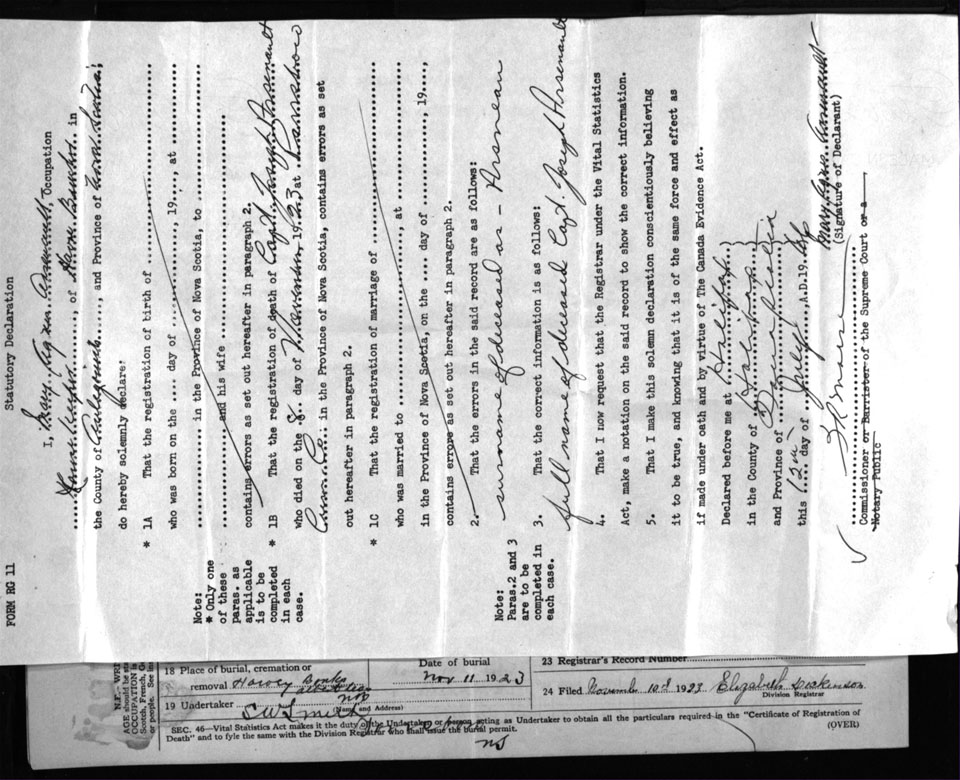 FORM RG 11
Statutory Declaration
I, Mary Agnes Arsenault, Occupation
of Harvey Bank, in
the County of , and Province of Nova Scotia,
do hereby solemnly declare:
* 1A That the registration of birth of
who was born on the .... day of , 19...., at
in the Province of Nova Scotia, to
and his wife
contains errors as set out hereafter in paragraph 2.
* 1B That the registration of death of Capt. Joseph Arsenault
who died on the 8 day of November, 1923 at Parrsboro
in the Province of Nova Scotia, contains errors as set
out hereafter in paragraph 2.
* 1C That the registration of marriage of
who was married to , at
in the Province of Nova Scotia, on the .... day of , 19....,
contains errors as set out hereafter in paragraph 2.
Note:
* Only one
of these
paras. as
applicable
is to be
completed
in each
case.
2. That the errors in the said record are as follows:
surname of deceased as - Arseneau
3. That the correct information is as follows:
full name of deceased Capt. Joseph Arsenault
Note:
Paras.2 and 3
are to be
completed in
each case.
4. That I now request that the Registrar under the Vital Statistics
Act, make a notation on the said record to show the correct information.
5. That I make this solemn declaration conscientiously believing
it to be true, and knowing that it is of the same force and effect as
if made under oath and by virtue of The Canada Evidence Act.
Declared before me at Halifax
in the County of Halifax
and Province of Nova Scotia
this 12th day of July, A.D.19
Mary Agnes Arsenault
(Signature of Declarant)
Commissioner or Barrister of the Supreme Court or a
Notary Public
18 Place of burial, cremation or
removal Harvey Bank
Date of burial
Nov 11 1923
19 Undertaker S W Smith
(Name and Address)
NS
23 Registrar's Record Number
24 Filed November 10th 1923 Elizabeth Dickinson
Division Registrar
SEC. 46—Vital Statistics Act makes it the duty of the Undertaker or person acting as Undertaker to obtain all the particulars required in the "Certificate of Registration of
Death" and to fyle the same with the Division Registrar who shall issue the burial permit.
(OVER)